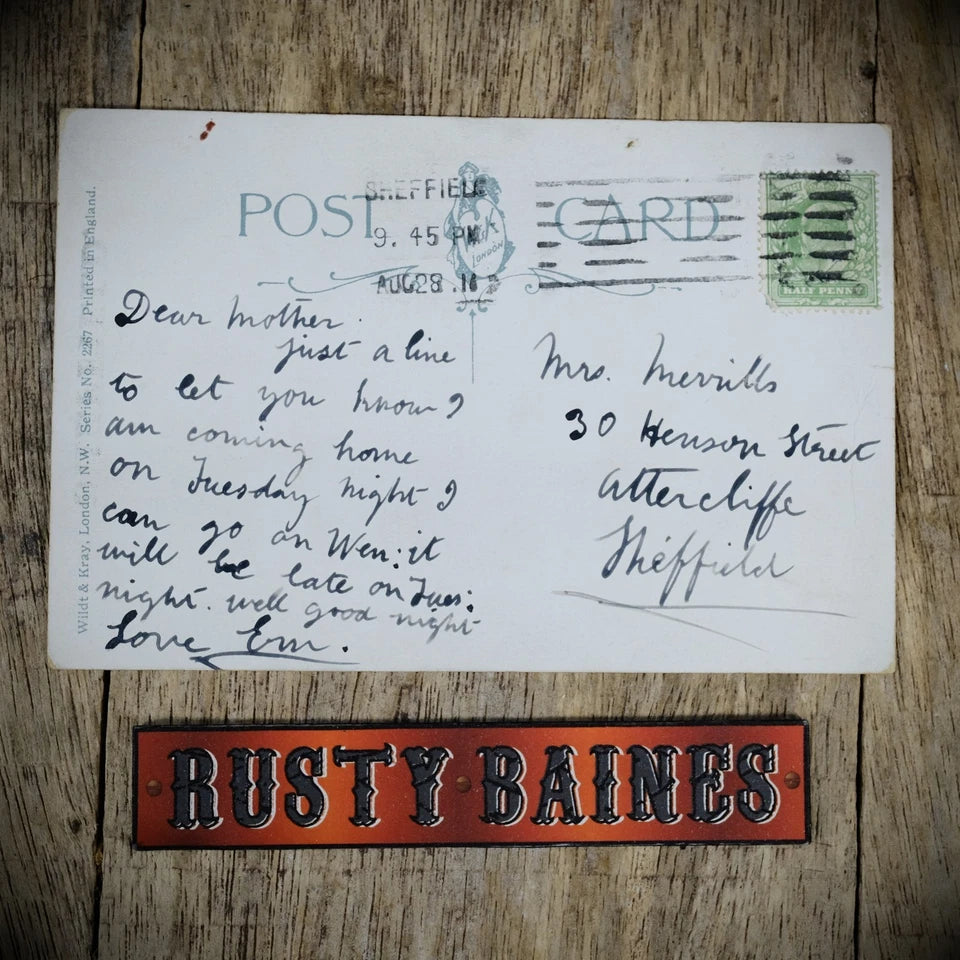 POST CARD
SHEFFIELD
9. 45 PM
AUG 28
W&K
LONDON
HALF PENNY
Wildt & Kray, London, N.W. Series No. 2267 Printed in England.
Dear Mother.
just a line
to let you know I
am coming home
on Tuesday night I
can go on Wen: it
will be late on Tues:
night. well good night
Love Em.
Mrs. Merrills
30 Henson Street
Attercliffe
Sheffield
RUSTY BAINES